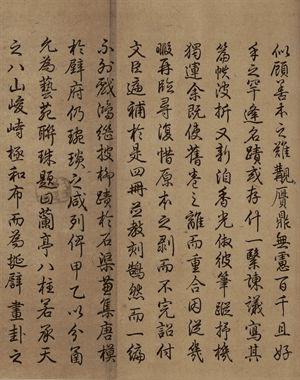 似顧善本之難觀贋鼎無慮百千且好
事之罕逢名蹟或存什一繄諫議寫其
篇帙波折又新洎香光倣彼筆蹤抒機
獨運余既使舊卷之離而重合因從幾
暇再臨尋復惜原本之剝而不完詔付
文臣遞補於是四冊並教刻鵠然而一編
不列戲鴻繼披柳蹟於石渠蒐集唐模
於壁府仍琬琰之咸列俾甲乙以分函
允為藝苑聯珠題曰蘭亭八柱若承天
之八山峻峙極和布而為埏壁畫卦之